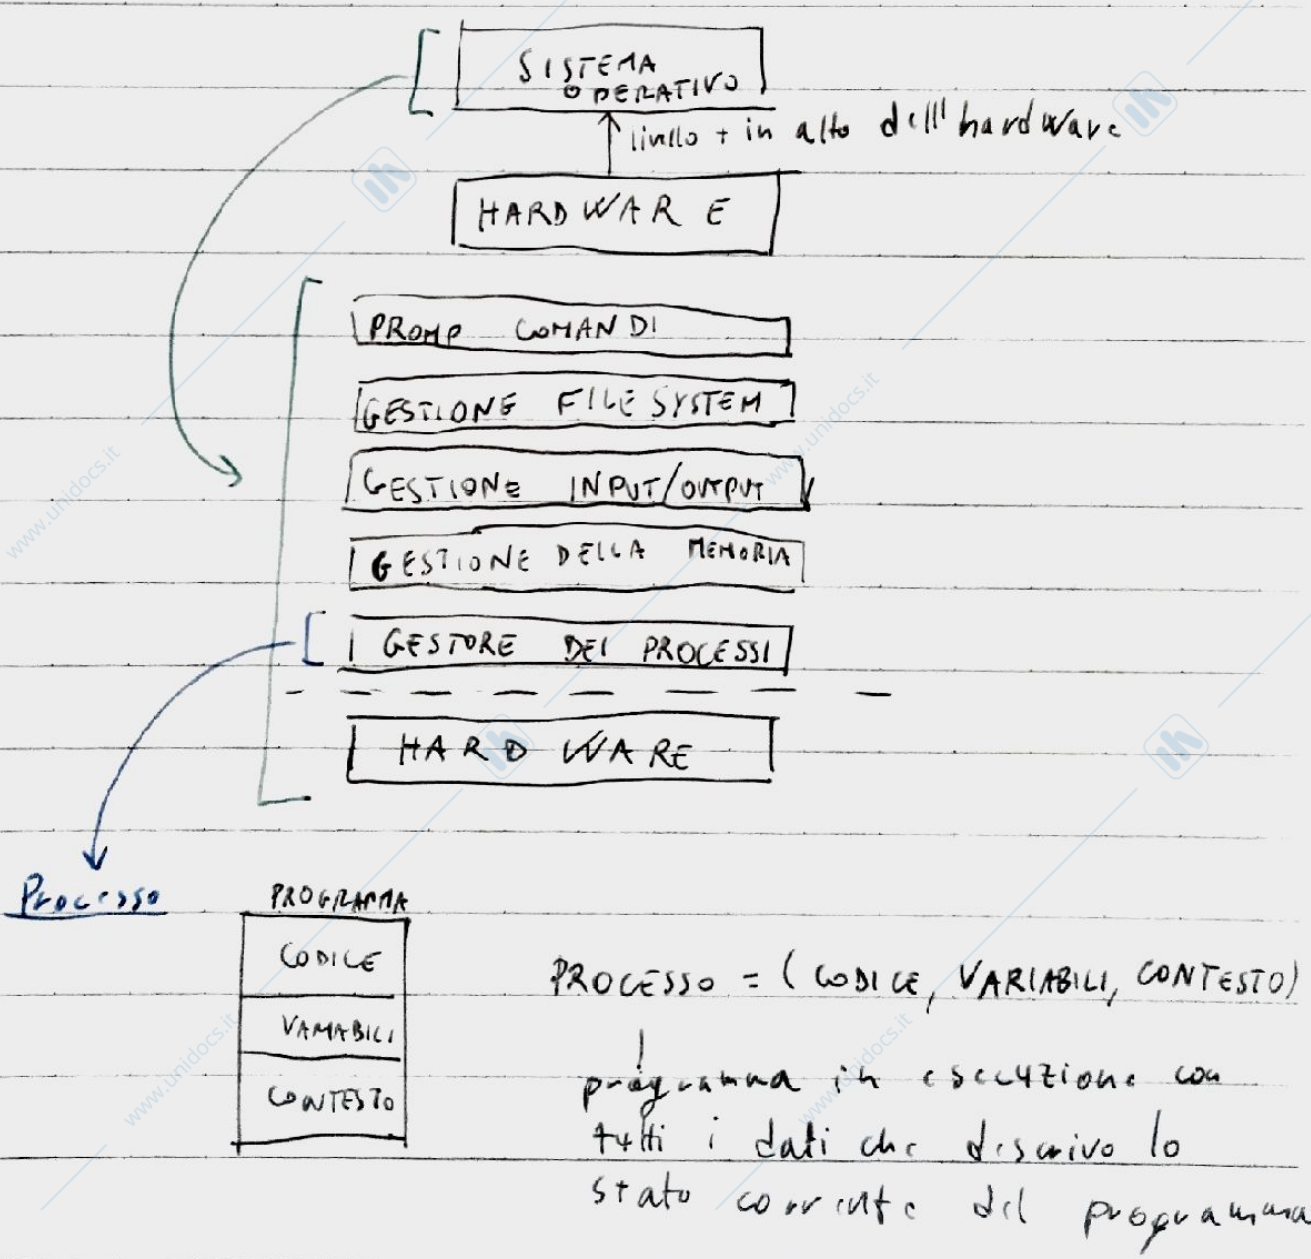 SISTEMA
OPERATIVO
livello + in alto dell'hardware
HARDWARE
PROMP COMANDI
GESTIONE FILE SYSTEM
GESTIONE INPUT/OUTPUT
GESTIONE DELLA MEMORIA
GESTORE DEI PROCESSI
HARDWARE
Processo
PROGRAMMA
CODICE
VARIABILI
CONTESTO
PROCESSO = (CODICE, VARIABILI, CONTESTO)
programma in esecuzione con
tutti i dati che descrivo lo
stato corrente del programma
www.unidocs.it
www.unidocs.it
www.unidocs.it
www.unidocs.it